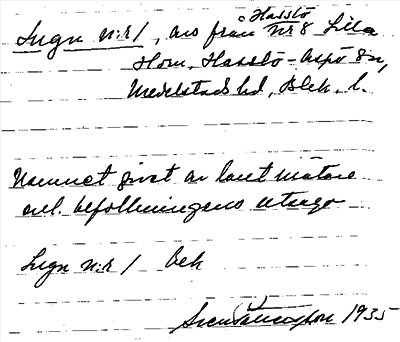 Hasslö
Lugn n:r 1, avs från nr 8 Lilla
Hom. Hasslö-Aspö sn,
Medelstads hd, Blek. l.
Namnet givet av lantmätare
enl. befolkningens utsago
Lugn n:r 1 bek
1935